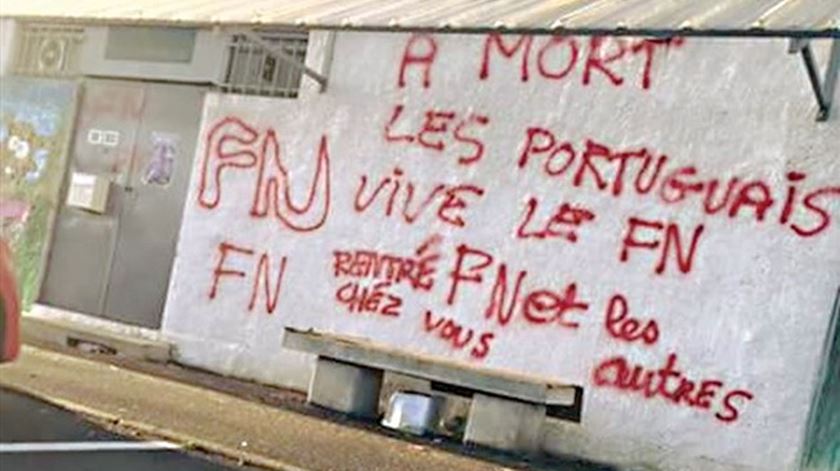 A MORT
LES PORTUGUAIS
VIVE LE FN
FN
FN
RENTRÉ
CHÉZ VOUS
FN et les
autres